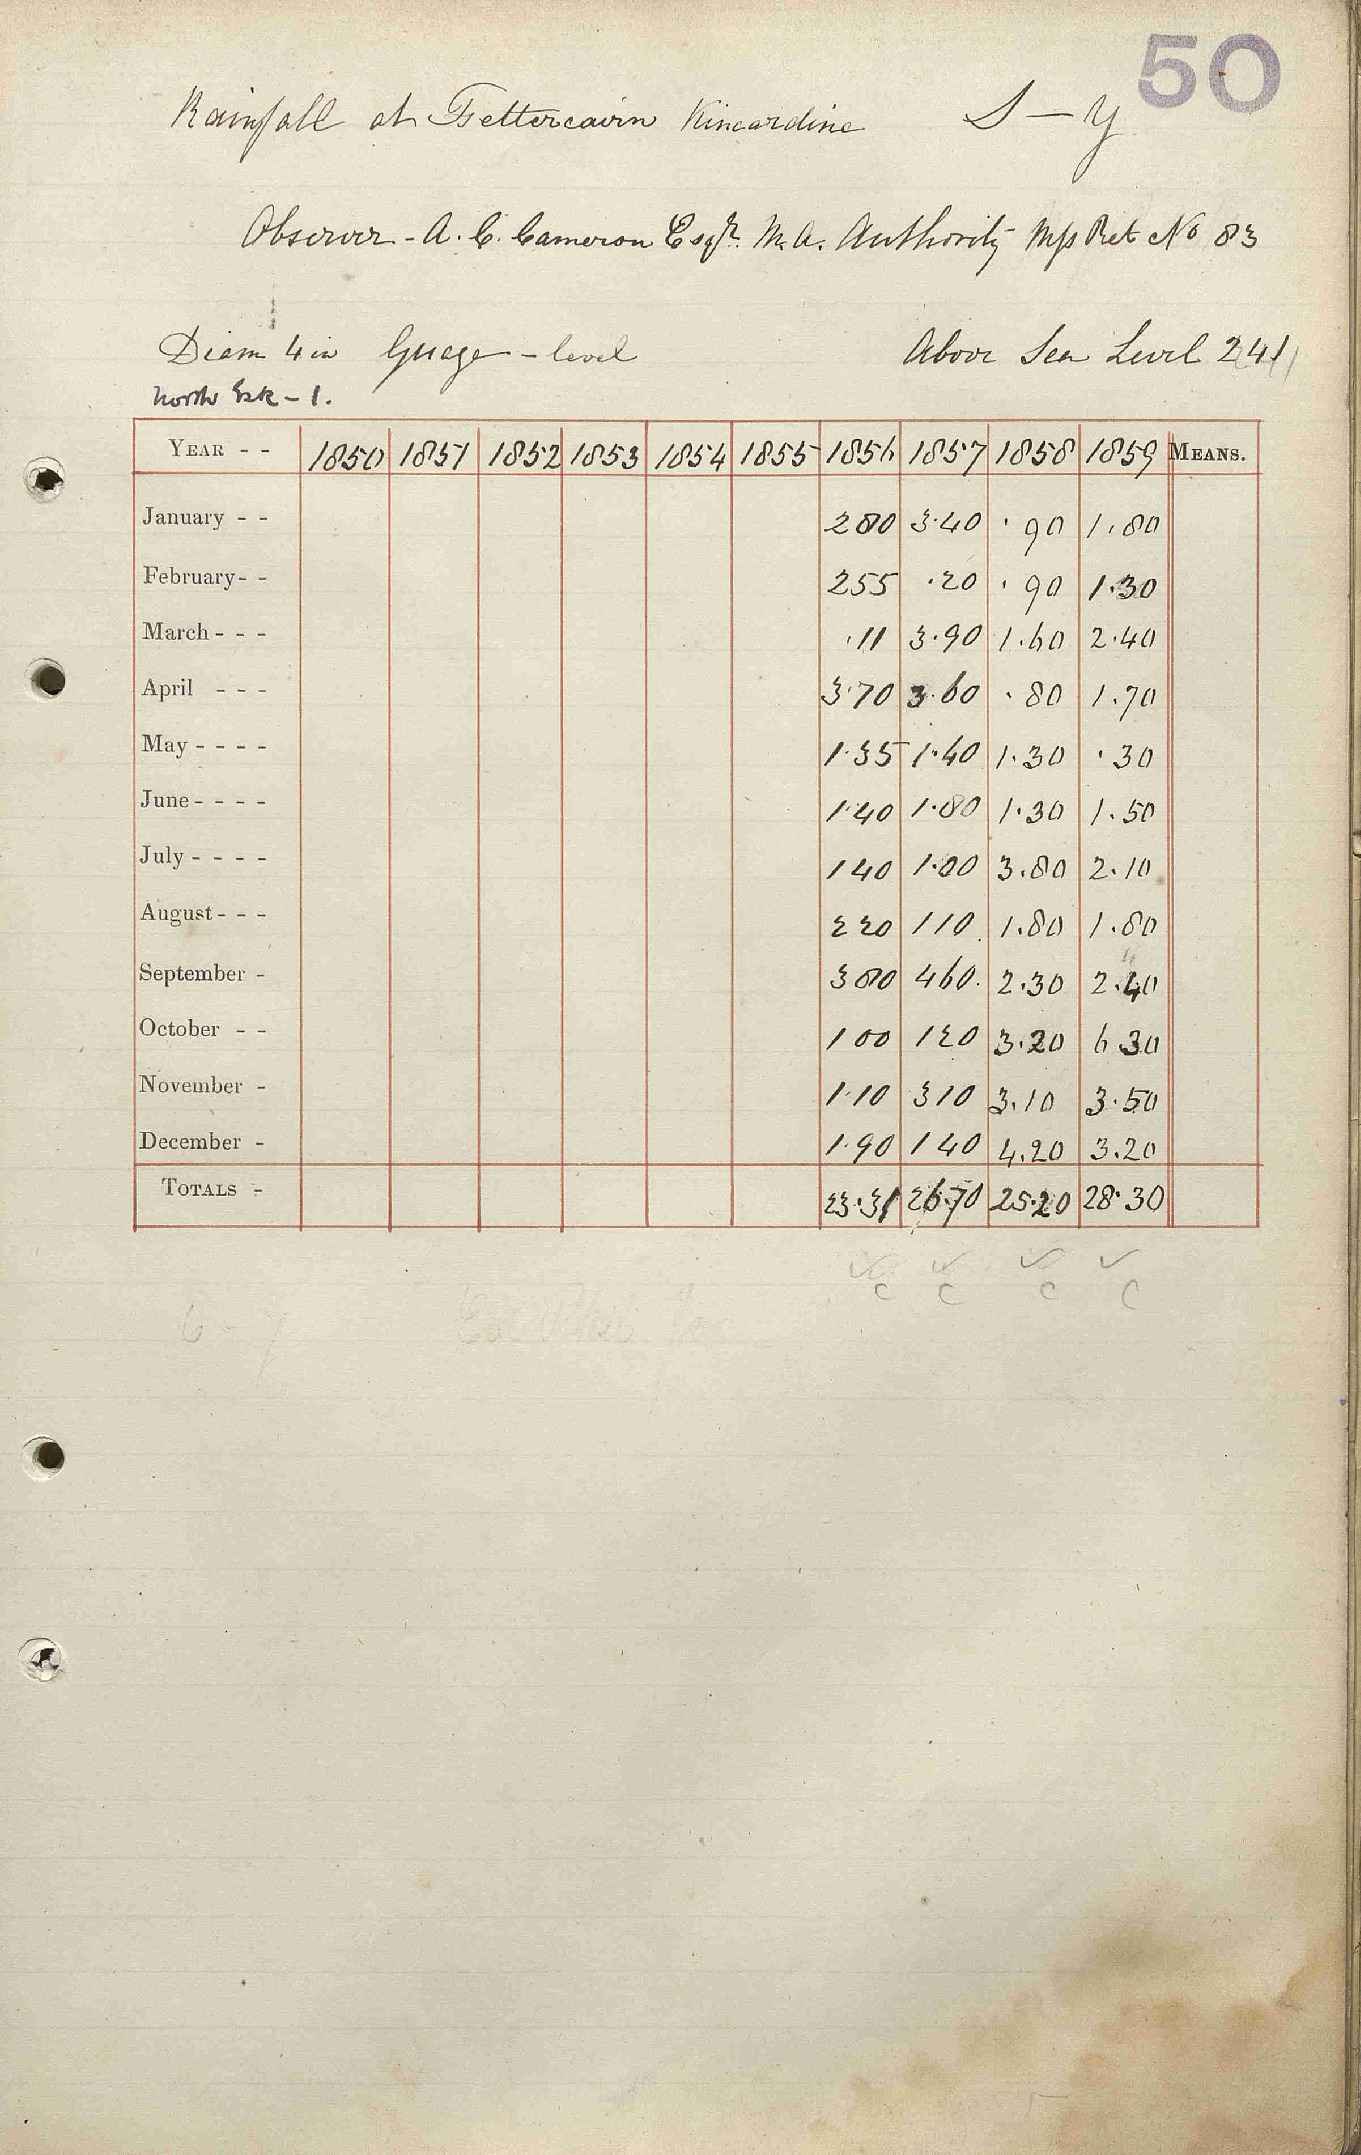 50
Rainfall at Fettercairn Kincardine S – Y
Observer - A. C. Cameron Esqr. M.A. Authority Mss Ret No 83
Diam 4 in Guage - level Above Sea Level 241
North Esk - 1.
YEAR - - 1850 1851 1852 1853 1854 1855 1856 1857 1858 1859 MEANS.
January - - 280 3.40 .90 1.80
February - - 255 .20 .90 1.30
March - - - .11 3.90 1.60 2.40
April - - - 3.70 3.60 .80 1.70
May - - - - 1.35 1.40 1.30 .30
June - - - - 1.40 1.80 1.30 1.50
July - - - - 1 40 1.00 3.80 2.10
August - - - 2 20 1 10 1.80 1.80
September - 3 80 4 60. 2.30 2.40
October - - 1 00 1 20 3.20 6 30
November - 1.10 3 10 3.10 3.50
December - 1.90 1 40 4.20 3.20
TOTALS - 23.31 26.70 25.20 28.30
C C C C